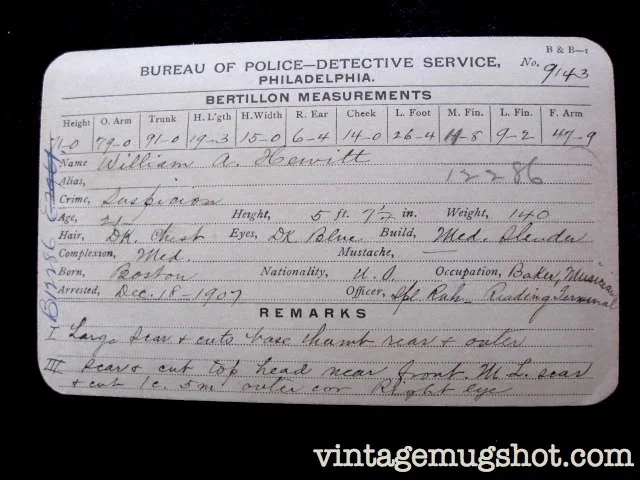 B & B—1
BUREAU OF POLICE—DETECTIVE SERVICE, No. 9143
PHILADELPHIA.
BERTILLON MEASUREMENTS
Height O. Arm Trunk H. L'gth H. Width R. Ear Cheek L. Foot M. Fin. L. Fin. F. Arm
71-0 79-0 91-0 19-3 15-0 6-4 14-0 26-4 11-8 9-2 47-9
Name William A. Hewitt
Alias, 12286
Crime, Suspicion
Age, 21 Height, 5 ft. 7½ in. Weight, 140
Hair, DK. Chest Eyes, DK Blue Build, Med. Slender
Complexion, Med. Mustache, —
Born, Boston Nationality, U.S. Occupation, Baker, Musician
Arrested, Dec. 18-1907 Officer, Spl Reading Terminal
B12286
REMARKS
I Large scar & cuts base thumb rear & outer
III scar & cut top head near front M. L. scar
& cut 1c. 5m outer cor Right eye
vintagemugshot.com